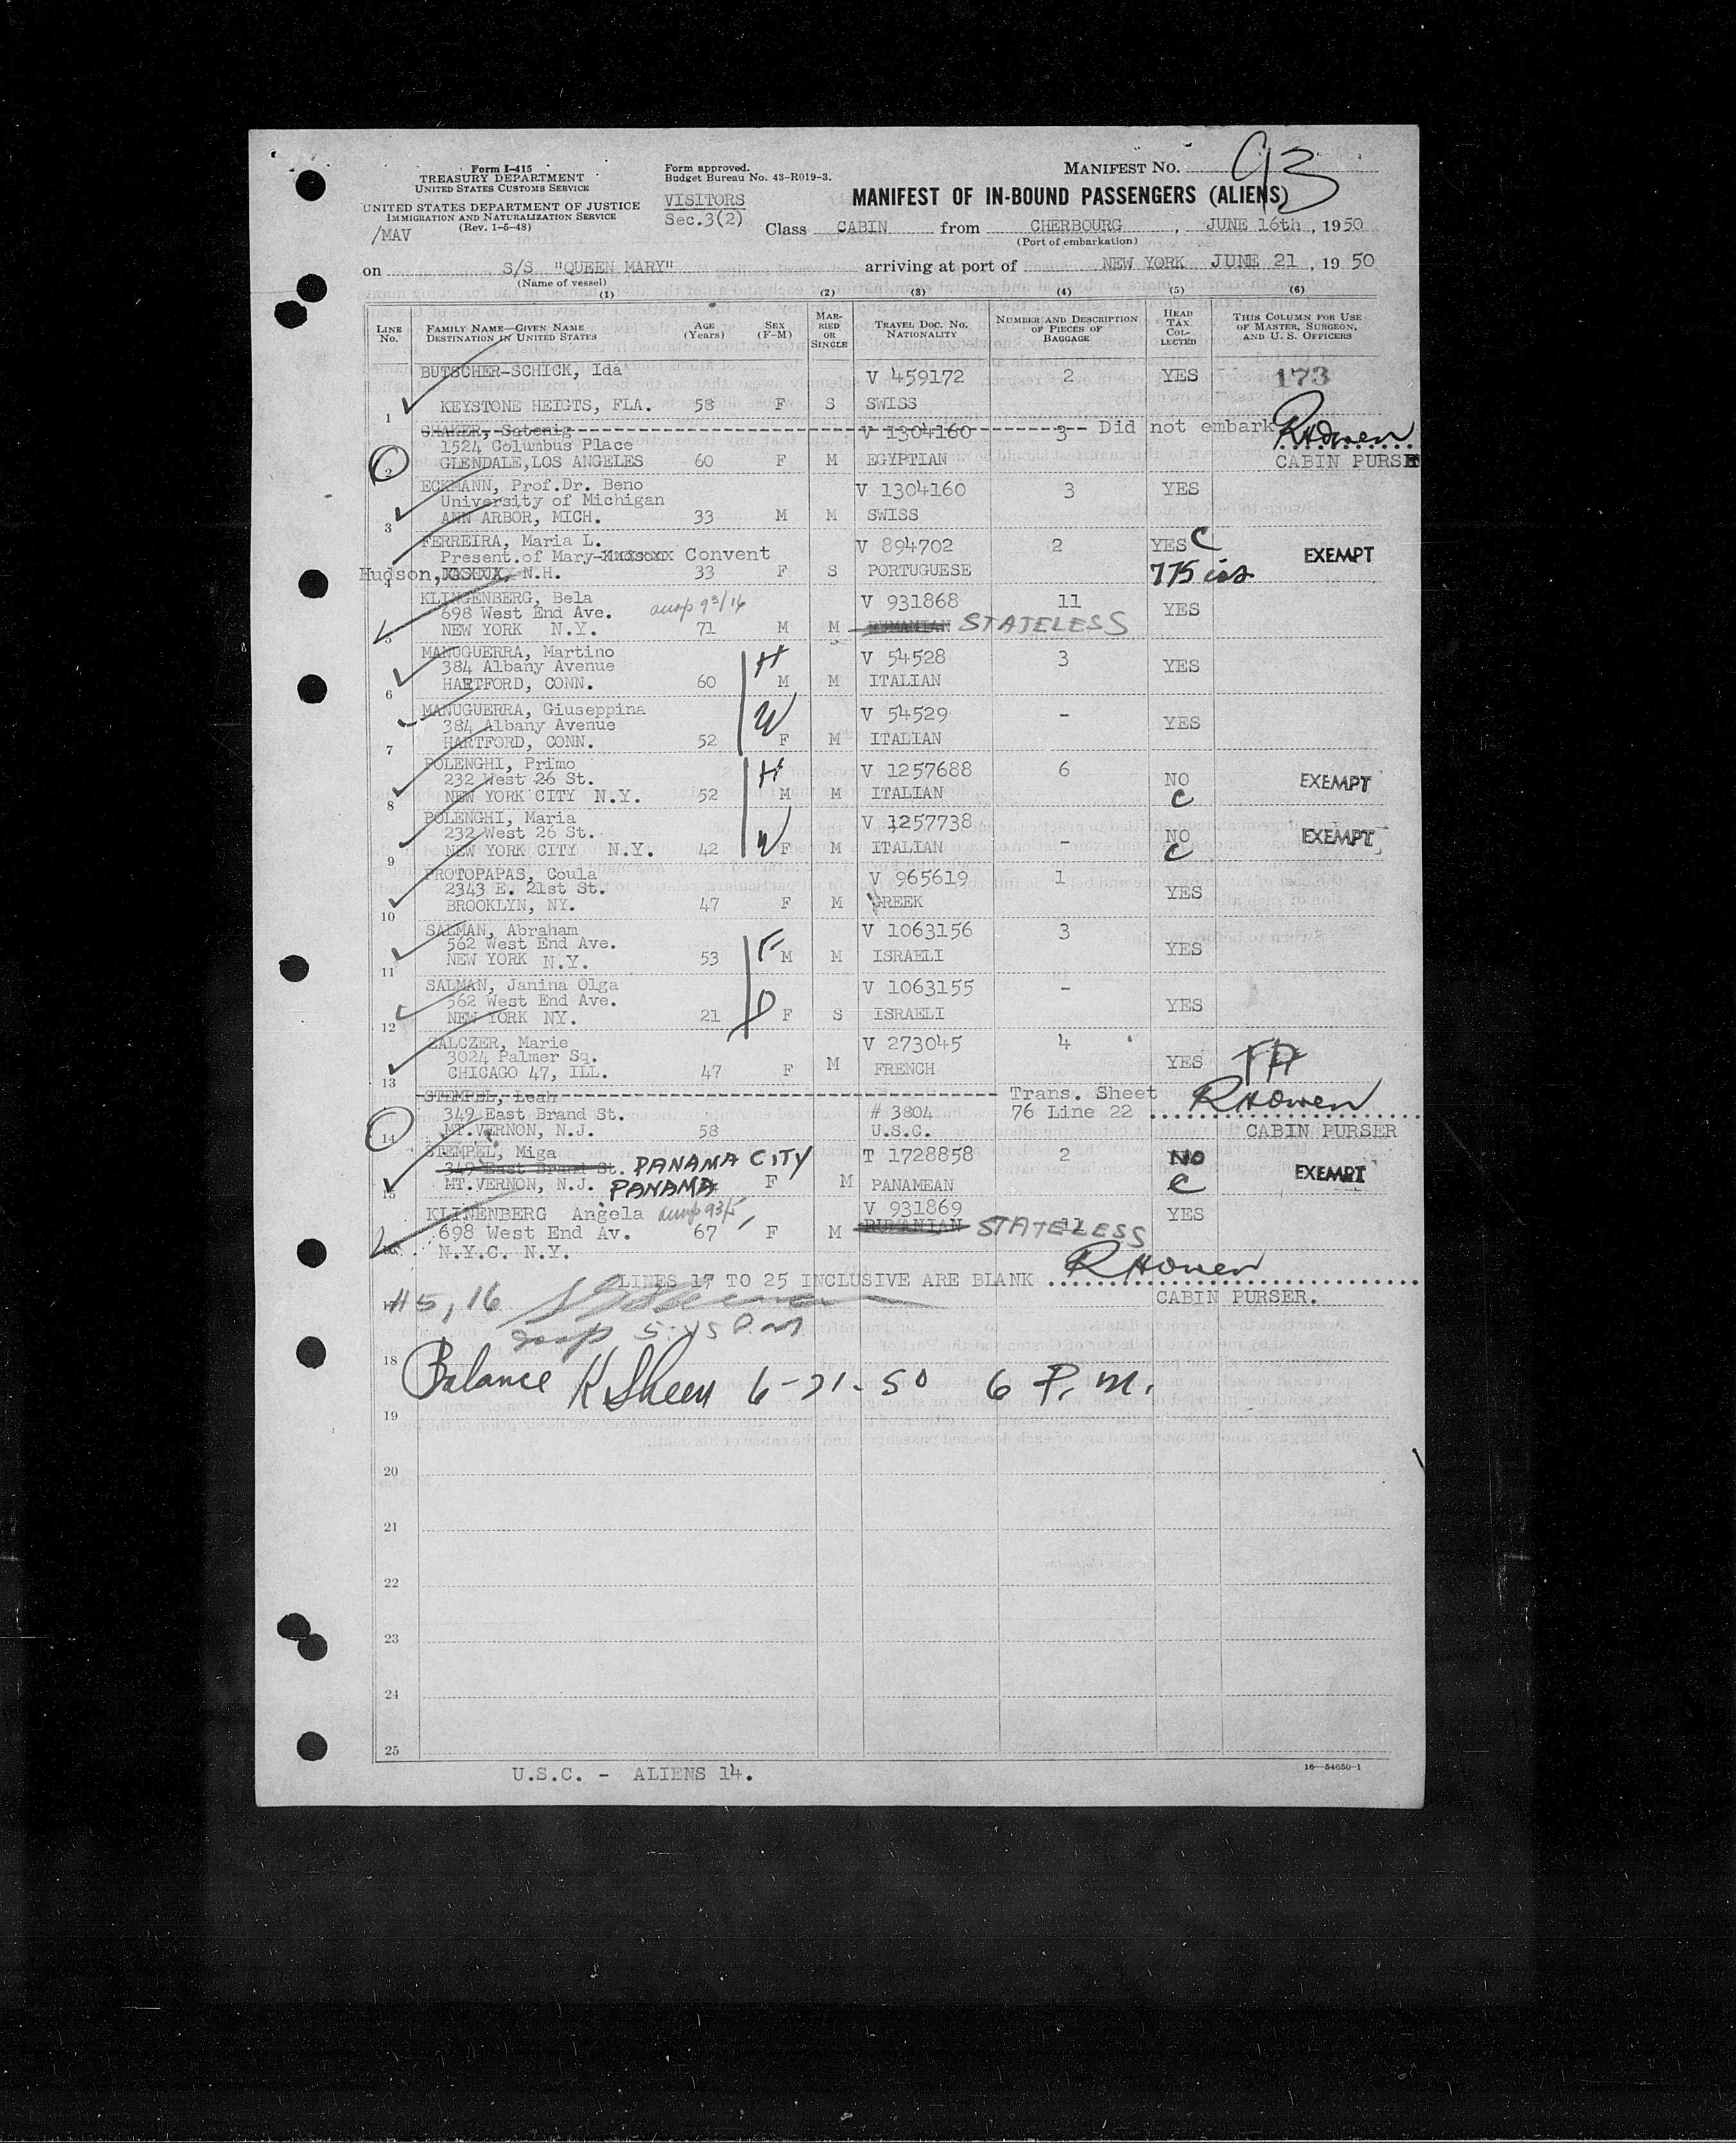 Form I-415
TREASURY DEPARTMENT
UNITED STATES CUSTOMS SERVICE
UNITED STATES DEPARTMENT OF JUSTICE
IMMIGRATION AND NATURALIZATION SERVICE
(Rev. 1-5-48)
/MAV
Form approved.
Budget Bureau No. 43-R019-3.
VISITORS
Sec.3(2)
MANIFEST NO. 93
MANIFEST OF IN-BOUND PASSENGERS (ALIENS)
Class CABIN from CHERBOURG , JUNE 16th , 1950
(Port of embarkation)
on S/S "QUEEN MARY" arriving at port of NEW YORK JUNE 21 , 19 50
(Name of vessel)
(1) (2) (3) (4) (5) (6)
LINE No. FAMILY NAME—GIVEN NAME DESTINATION IN UNITED STATES AGE (Years) SEX (F-M) MARRIED OR SINGLE TRAVEL DOC. NO. NATIONALITY NUMBER AND DESCRIPTION OF PIECES OF BAGGAGE HEAD TAX COLLECTED THIS COLUMN FOR USE OF MASTER, SURGEON, AND U. S. OFFICERS
BUTSCHER-SCHICK, Ida V 459172 2 YES 173
1 KEYSTONE HEIGTS, FLA. 58 F S SWISS
SHAKER, Satenig V 1304160 3 Did not embark RHOwen
1524 Columbus Place
2 GLENDALE,LOS ANGELES 60 F M EGYPTIAN CABIN PURSER
ECKMANN, Prof.Dr. Beno V 1304160 3 YES
University of Michigan
3 ANN ARBOR, MICH. 33 M M SWISS
FERREIRA, Maria L. V 894702 2 YES C EXEMPT
Present.of Mary Convent
4 Hudson, N.H. 33 F S PORTUGUESE 775
KLINGENBERG, Bela V 931868 11 YES
698 West End Ave. 93/16
5 NEW YORK N.Y. 71 M M RUMANIAN STATELESS
MANUGUERRA, Martino H V 54528 3 YES
384 Albany Avenue
6 HARTFORD, CONN. 60 M M ITALIAN
MANUGUERRA, Giuseppina W V 54529 - YES
384 Albany Avenue
7 HARTFORD, CONN. 52 F M ITALIAN
POLENGHI, Primo H V 1257688 6 NO EXEMPT
232 West 26 St.
8 NEW YORK CITY N.Y. 52 M M ITALIAN C
POLENGHI, Maria W V 1257738 - NO EXEMPT
232 West 26 St.
9 NEW YORK CITY N.Y. 42 F M ITALIAN C
PROTOPAPAS, Coula V 965619 1 YES
2343 E. 21st St.
10 BROOKLYN, NY. 47 F M GREEK
SALMAN, Abraham F V 1063156 3 YES
562 West End Ave.
11 NEW YORK N.Y. 53 M M ISRAELI
SALMAN, Janina Olga D V 1063155 - YES
562 West End Ave.
12 NEW YORK NY. 21 F S ISRAELI
ZALCZER, Marie V 273045 4 YES
3024 Palmer Sq.
13 CHICAGO 47, ILL. 47 F M FRENCH
STEMPEL, Leah Trans. Sheet RHOwen
349 East Brand St. # 3804 76 Line 22
14 MT.VERNON, N.J. 58 U.S.C. CABIN PURSER
STEMPEL, Miga T 1728858 2 NO EXEMPT
349 East Brand St. PANAMA CITY
15 MT.VERNON, N.J. PANAMA F M PANAMEAN C
KLINENBERG Angela 93/5 V 931869 YES
698 West End Av. 67 F M RUMANIAN STATELESS 11
16 N.Y.C. N.Y.
LINES 17 TO 25 INCLUSIVE ARE BLANK RHOwen
CABIN PURSER.
17 #5, 16
5:45 P.M
18
Balance K Sheen 6-21-50 6 P.M.
19
20
21
22
23
24
25
U.S.C. - ALIENS 14.
16—54650-1